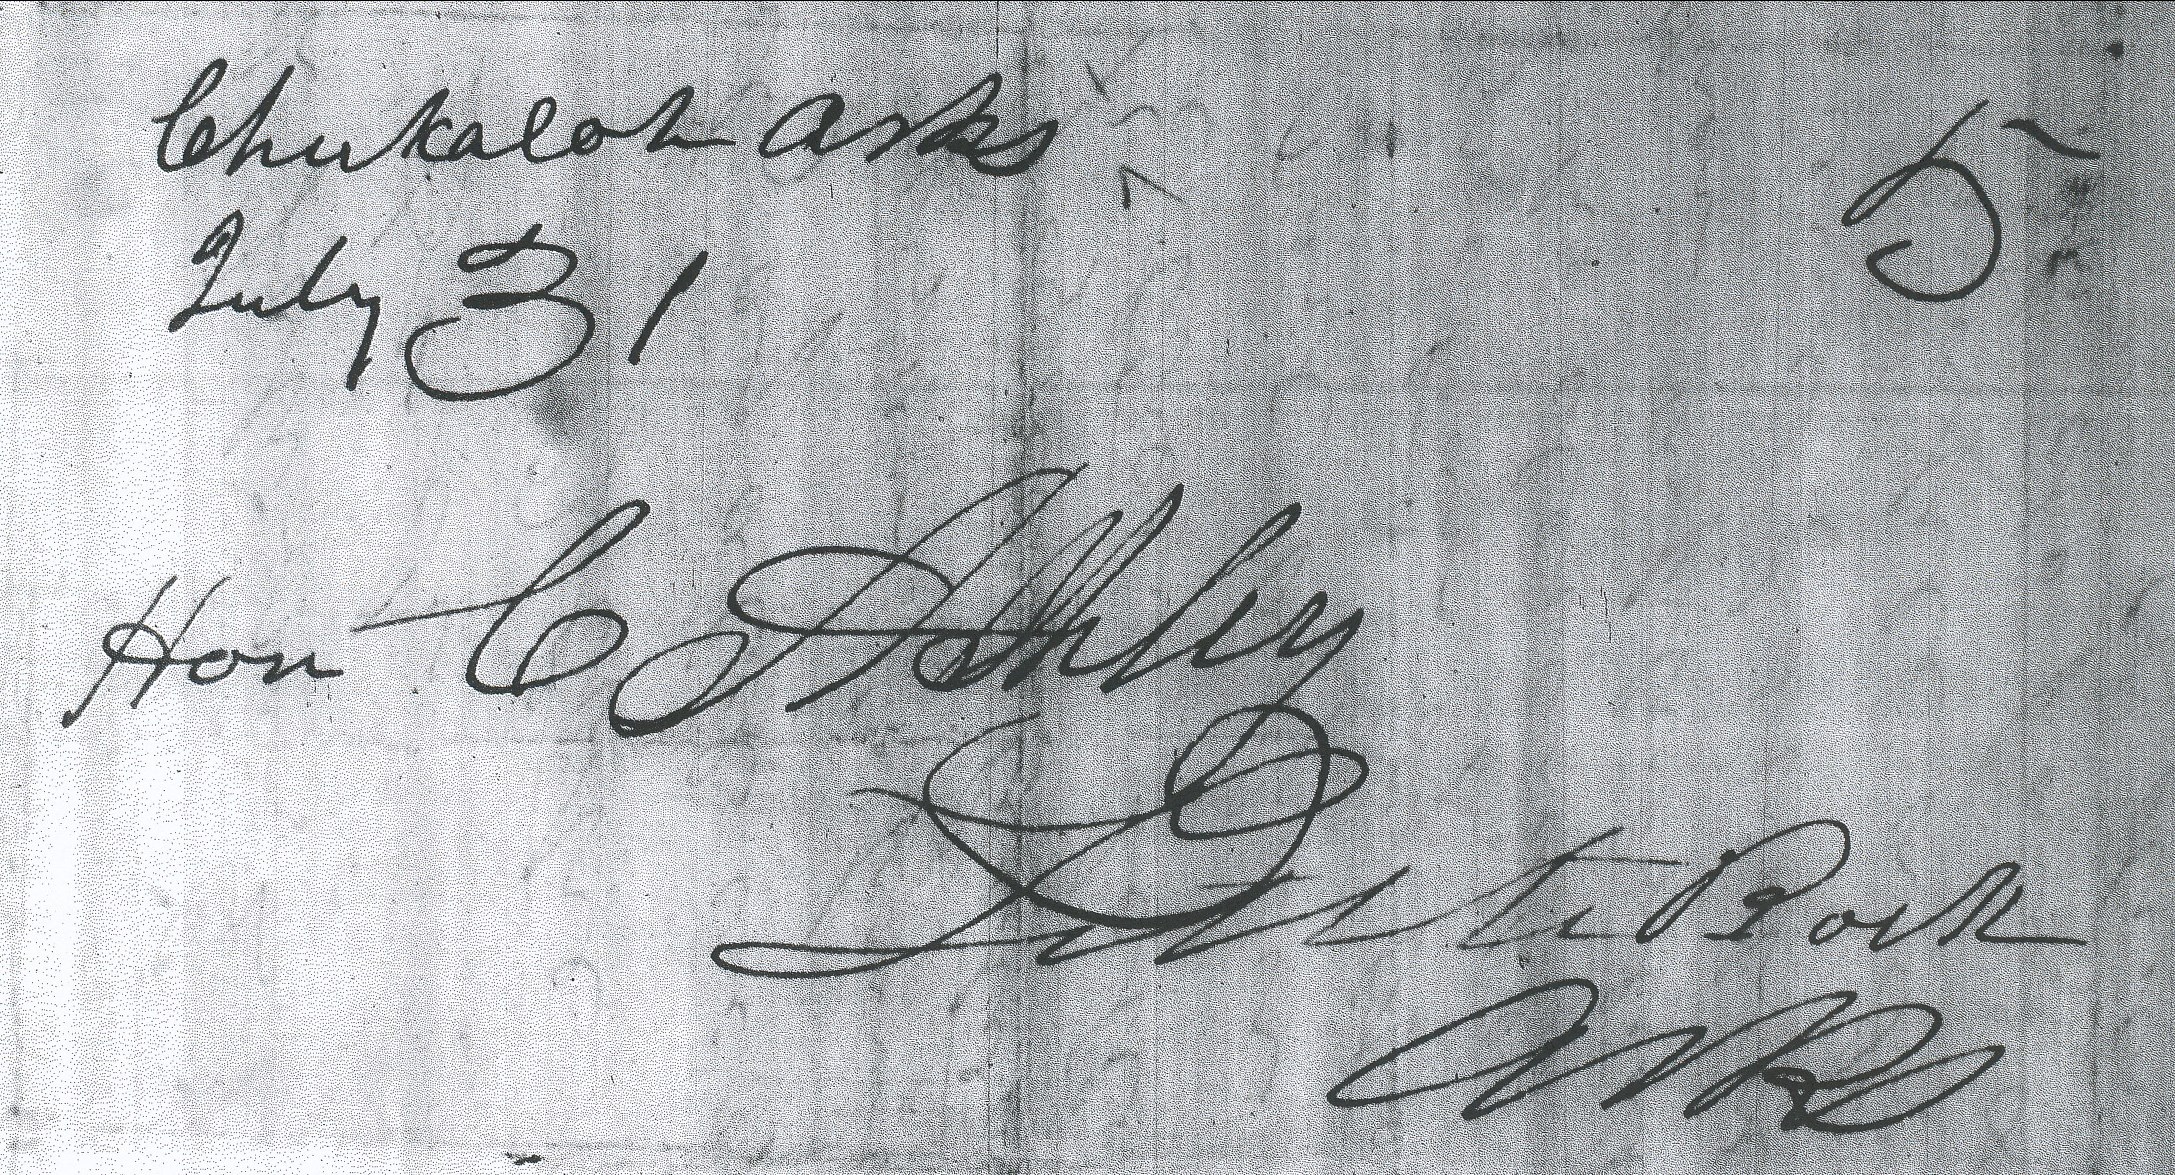 Chukaloh Arks 5
July 31
Hon C Ashley
Little Rock
Arks